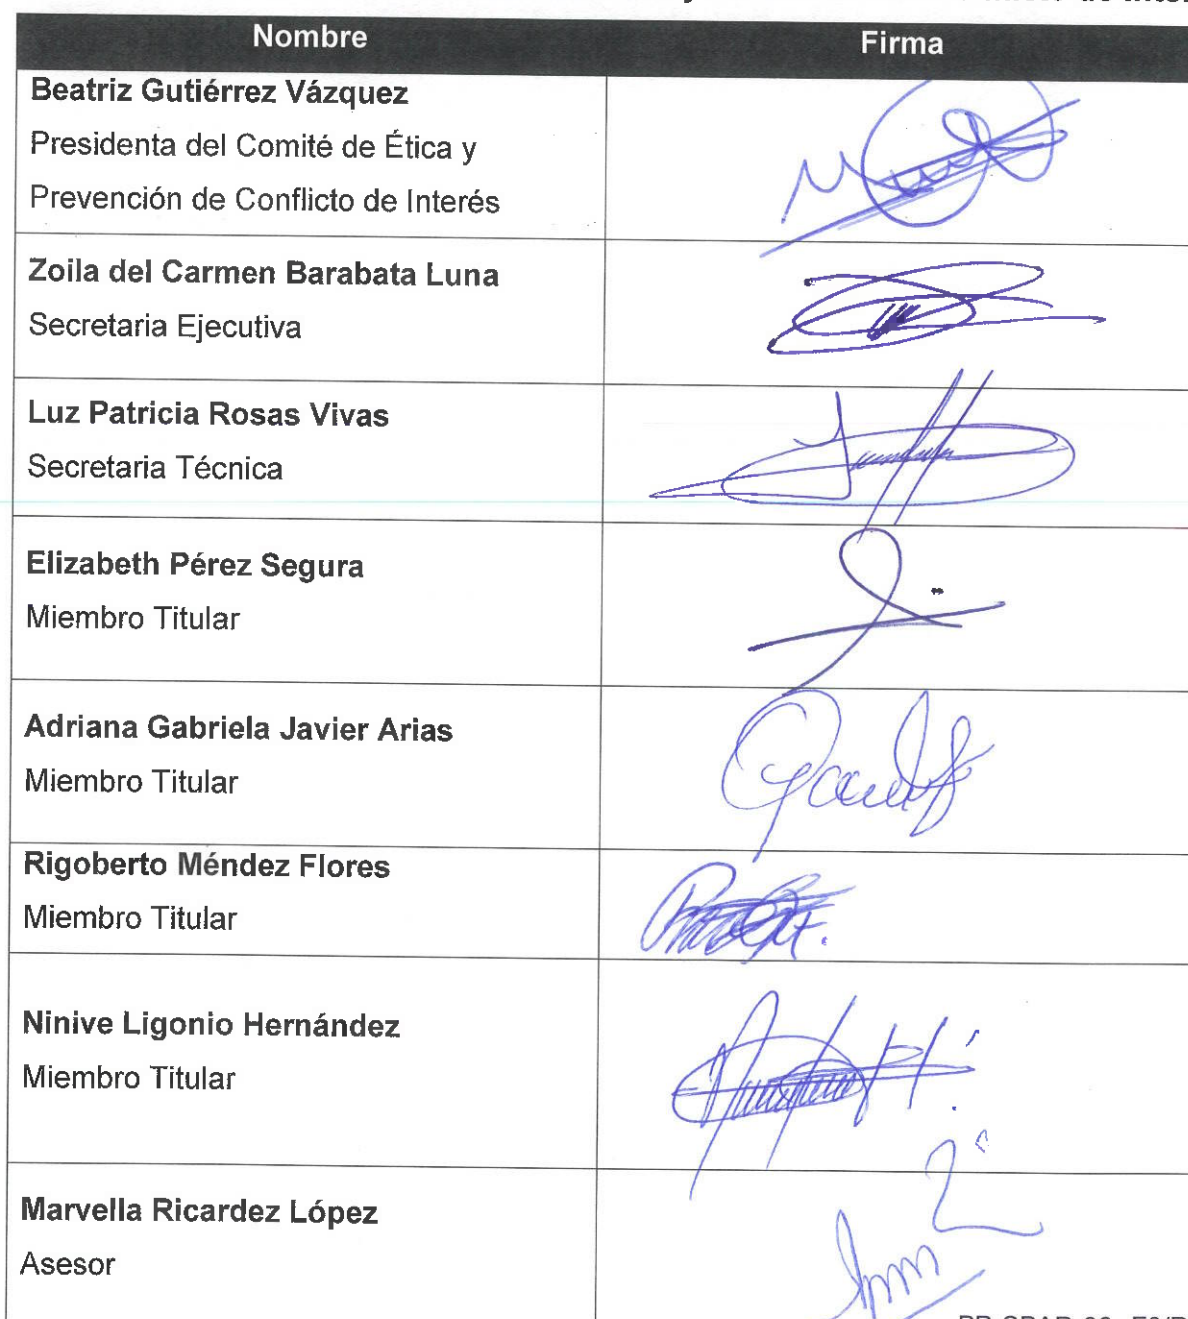 Nombre
Firma
Beatriz Gutiérrez Vázquez
Presidenta del Comité de Ética y
Prevención de Conflicto de Interés
Zoila del Carmen Barabata Luna
Secretaria Ejecutiva
Luz Patricia Rosas Vivas
Secretaria Técnica
Elizabeth Pérez Segura
Miembro Titular
Adriana Gabriela Javier Arias
Miembro Titular
Rigoberto Méndez Flores
Miembro Titular
Ninive Ligonio Hernández
Miembro Titular
Marvella Ricardez López
Asesor